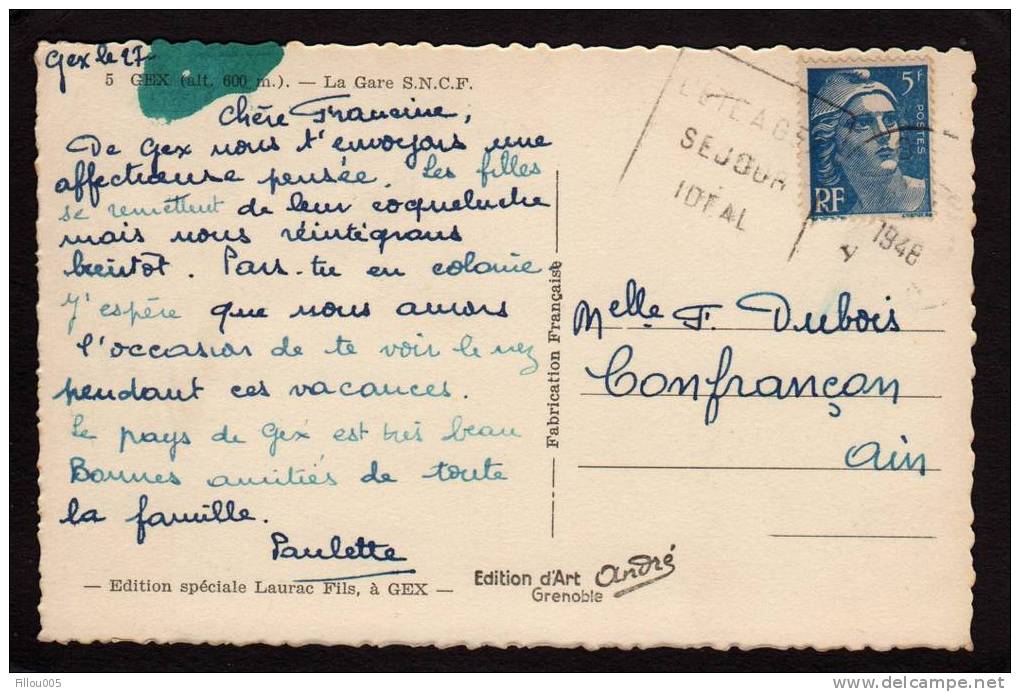 Gex le 27-
5 GEX (alt. 600 m.). — La Gare S.N.C.F.
Chère Francine,
De Gex nous t'envoyons une
affectueuse pensée. Les filles
se remettent de leur coqueluche
mais nous réintégrons
bientôt. Pars-tu en colonie
J'espère que nous aurons
l'occasion de te voir le nez
pendant ces vacances.
Le pays de Gex est très beau
Bonnes amitiés de toute
la famille.
Paulette
— Edition spéciale Laurac Fils, à GEX —
Edition d'Art André
Grenoble
Fabrication Française
SEJOUR
IDEAL
1948
5F
POSTES
RF
Melle F. Dubois
Confrançon
Ain
Filou005
www.delcampe.net